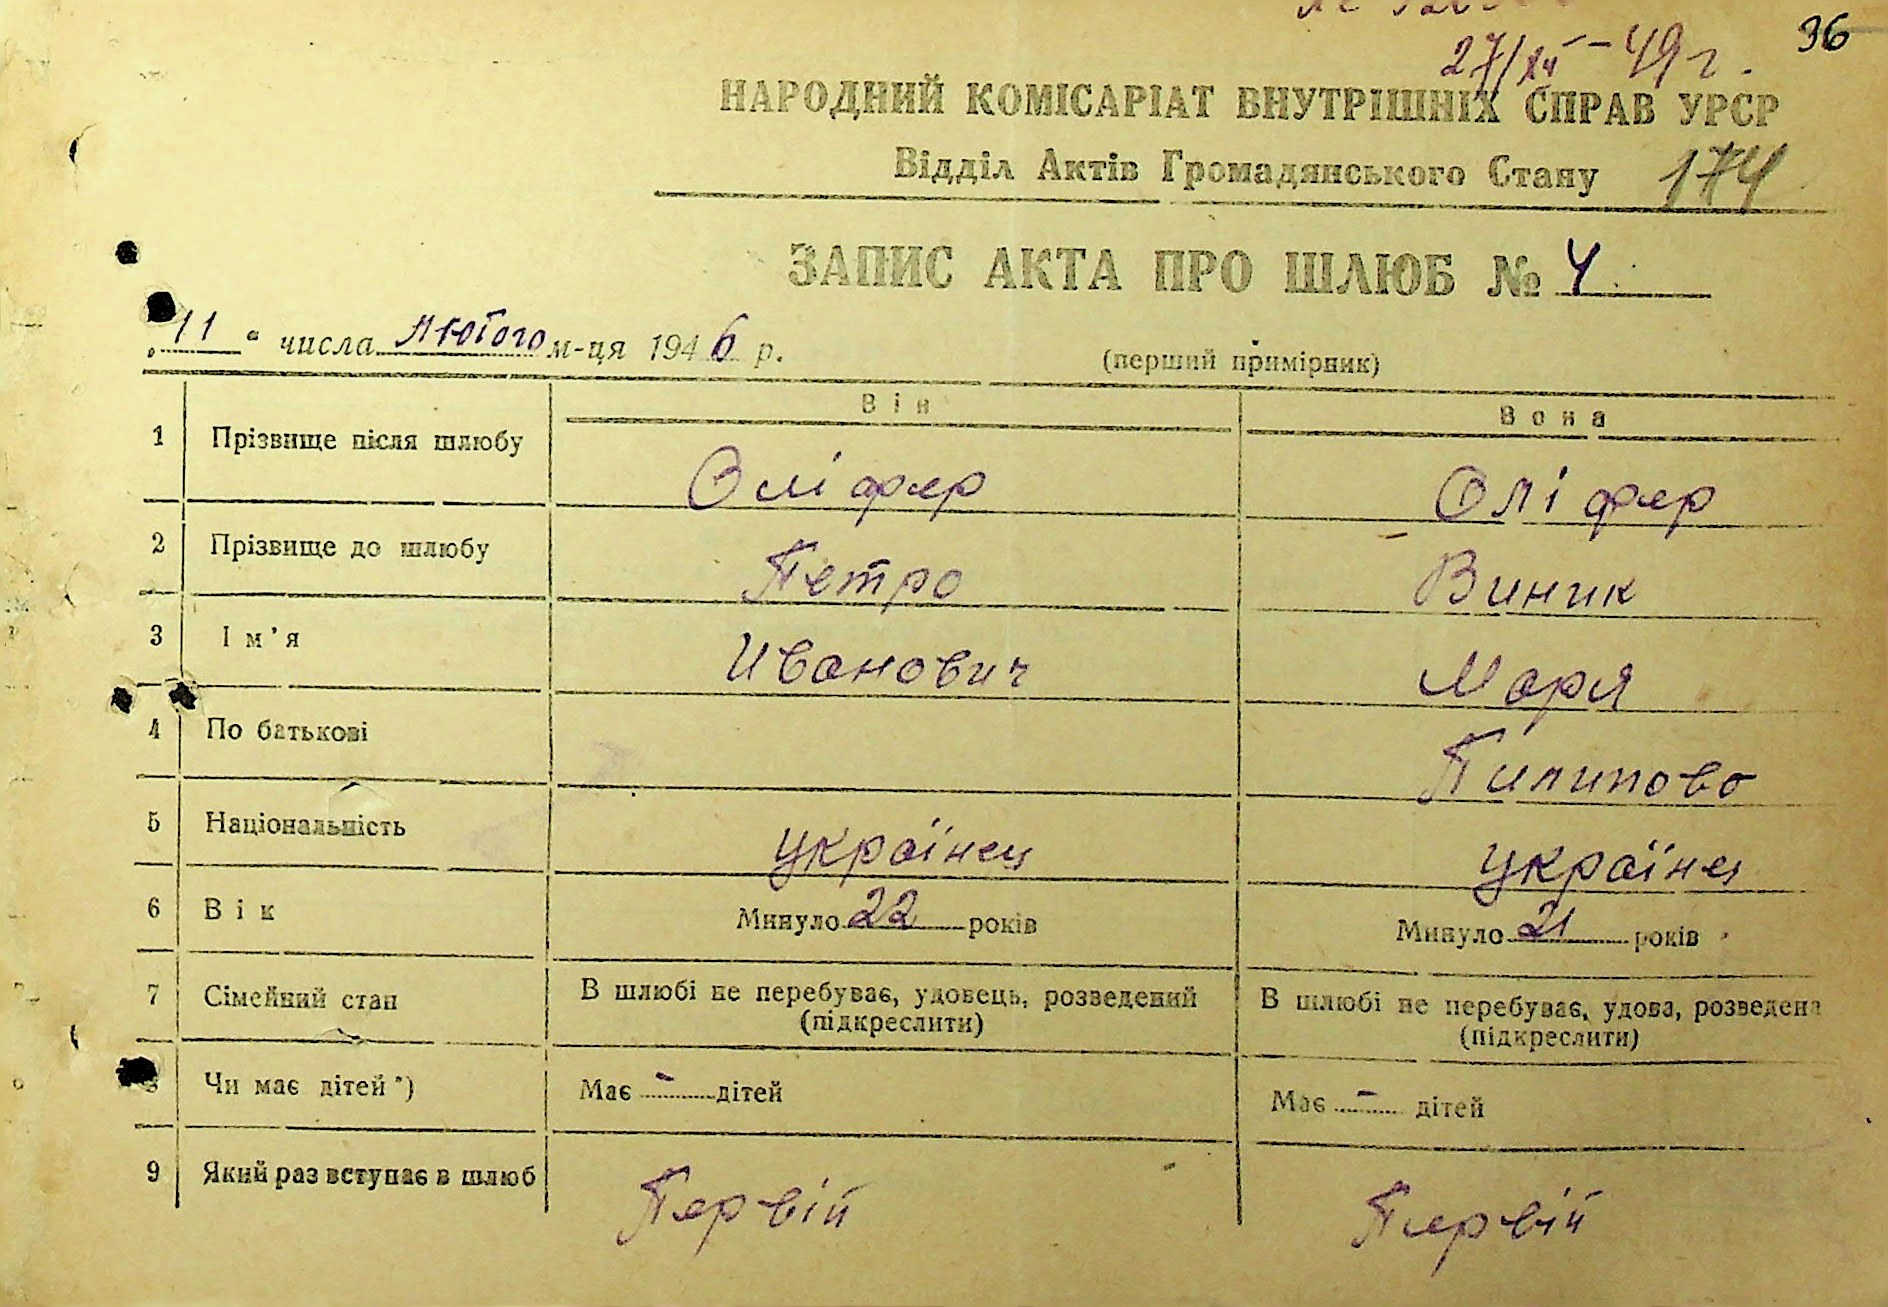 36
27/XII-49 г.
НАРОДНИЙ КОМІСАРІАТ ВНУТРІШНІХ СПРАВ УРСР
Відділ Актів Громадянського Стану 174
ЗАПИС АКТА ПРО ШЛЮБ № 4
"11" числа лютого м-ця 1946 р. (перший примірник)
Він Вона
1 Прізвище після шлюбу Оліфер Оліфер
2 Прізвище до шлюбу Петро Виник
3 Ім'я Иванович Маря
4 По батькові Пилипово
5 Національність українец українец
6 Вік Минуло 22 років Минуло 21 років
7 Сімейний стан В шлюбі не перебуває, удовець, розведений (підкреслити) В шлюбі не перебуває, удова, розведена (підкреслити)
8 Чи має дітей *) Має - дітей Має - дітей
9 Який раз вступає в шлюб Первій Первій